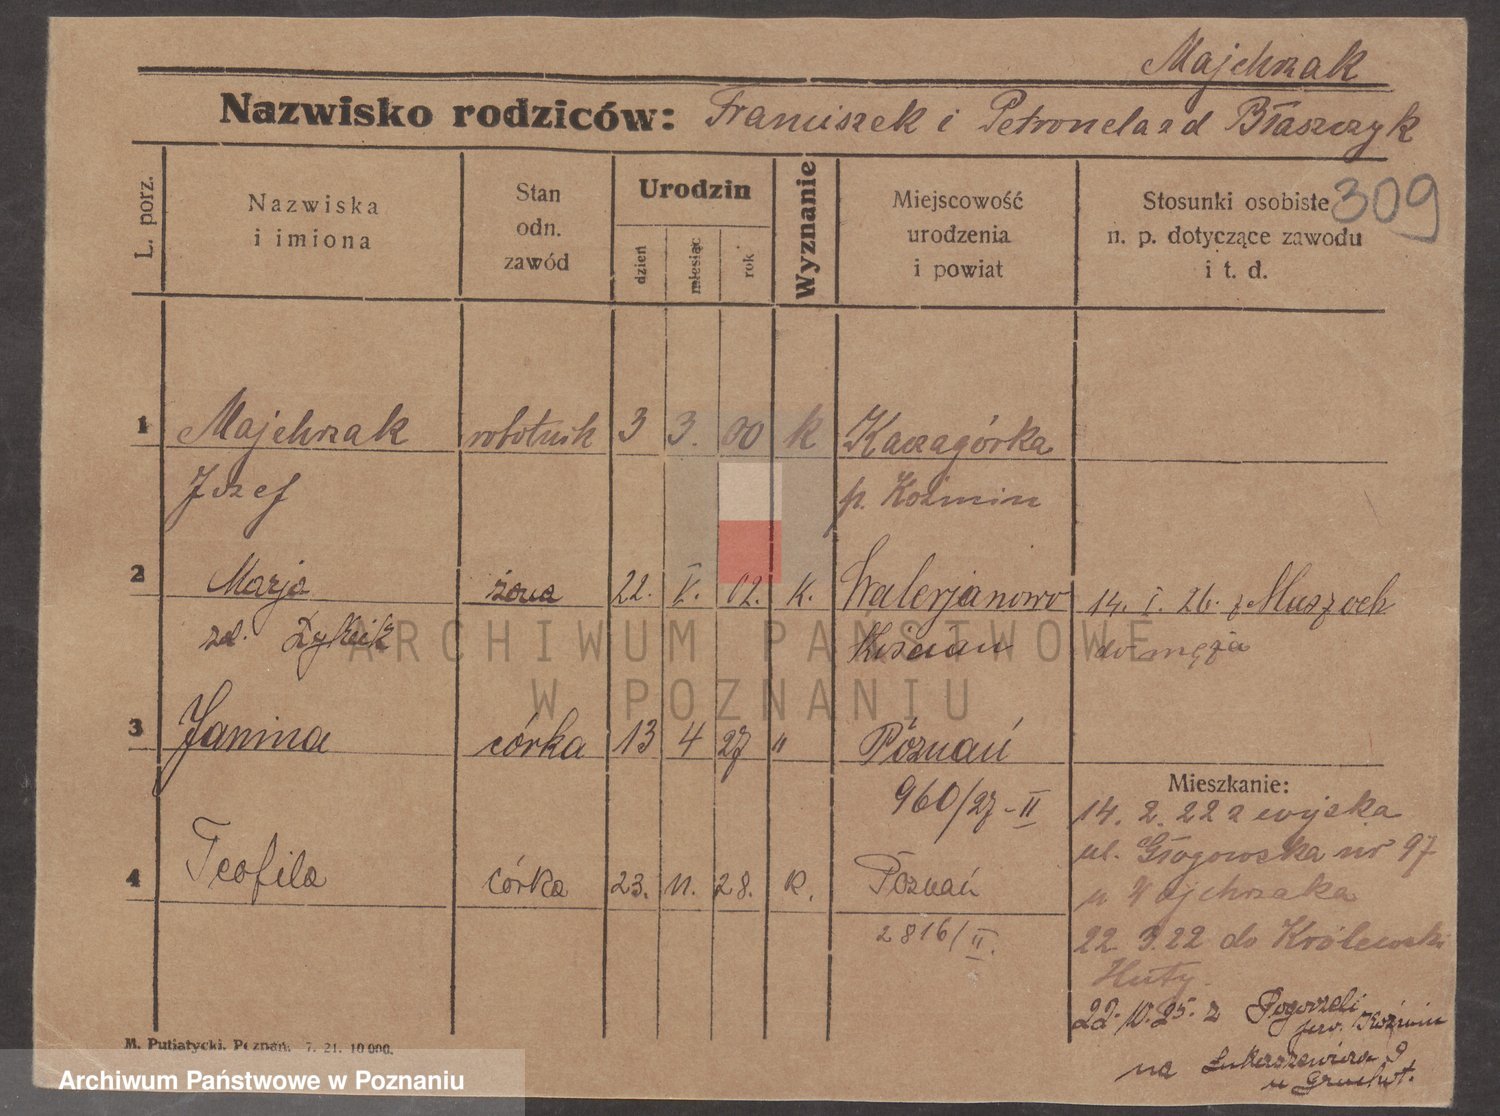 Majchrzak
Nazwisko rodziców: Franciszek i Petronela z d Błaszczyk
309
L. porz.
Nazwiska
i imiona
Stan
odn.
zawód
Urodzin
dzień
miesiąc
rok
Wyznanie
Miejscowość
urodzenia
i powiat
Stosunki osobiste
n. p. dotyczące zawodu
i t. d.
1 Majchrzak robotnik 3 3. 00 k Kaczagórka
Józef p. Koźmin
2 Marja żona 22. V. 02. k. Walerjanowo 14. I. 26. z
zd. Kościan do męża
3 Janina córka 13 4 27 " Poznań
960/27-II
4 Teofila córka 23. 11. 28. k. Poznań
2816/II.
Mieszkanie:
14. 2. 22 z wojska
ul. Głogowska nr 97
u Majchrzaka
22 3.22 do Królewski
Huty.
22. 10. 25. z Pogorzeli
pow. Koźmin
na Łukaszewicza 9
u
M. Putiatycki, Poznań. 7. 21. 10 000.
ARCHIWUM PAŃSTWOWE
W POZNANIU
Archiwum Państwowe w Poznaniu